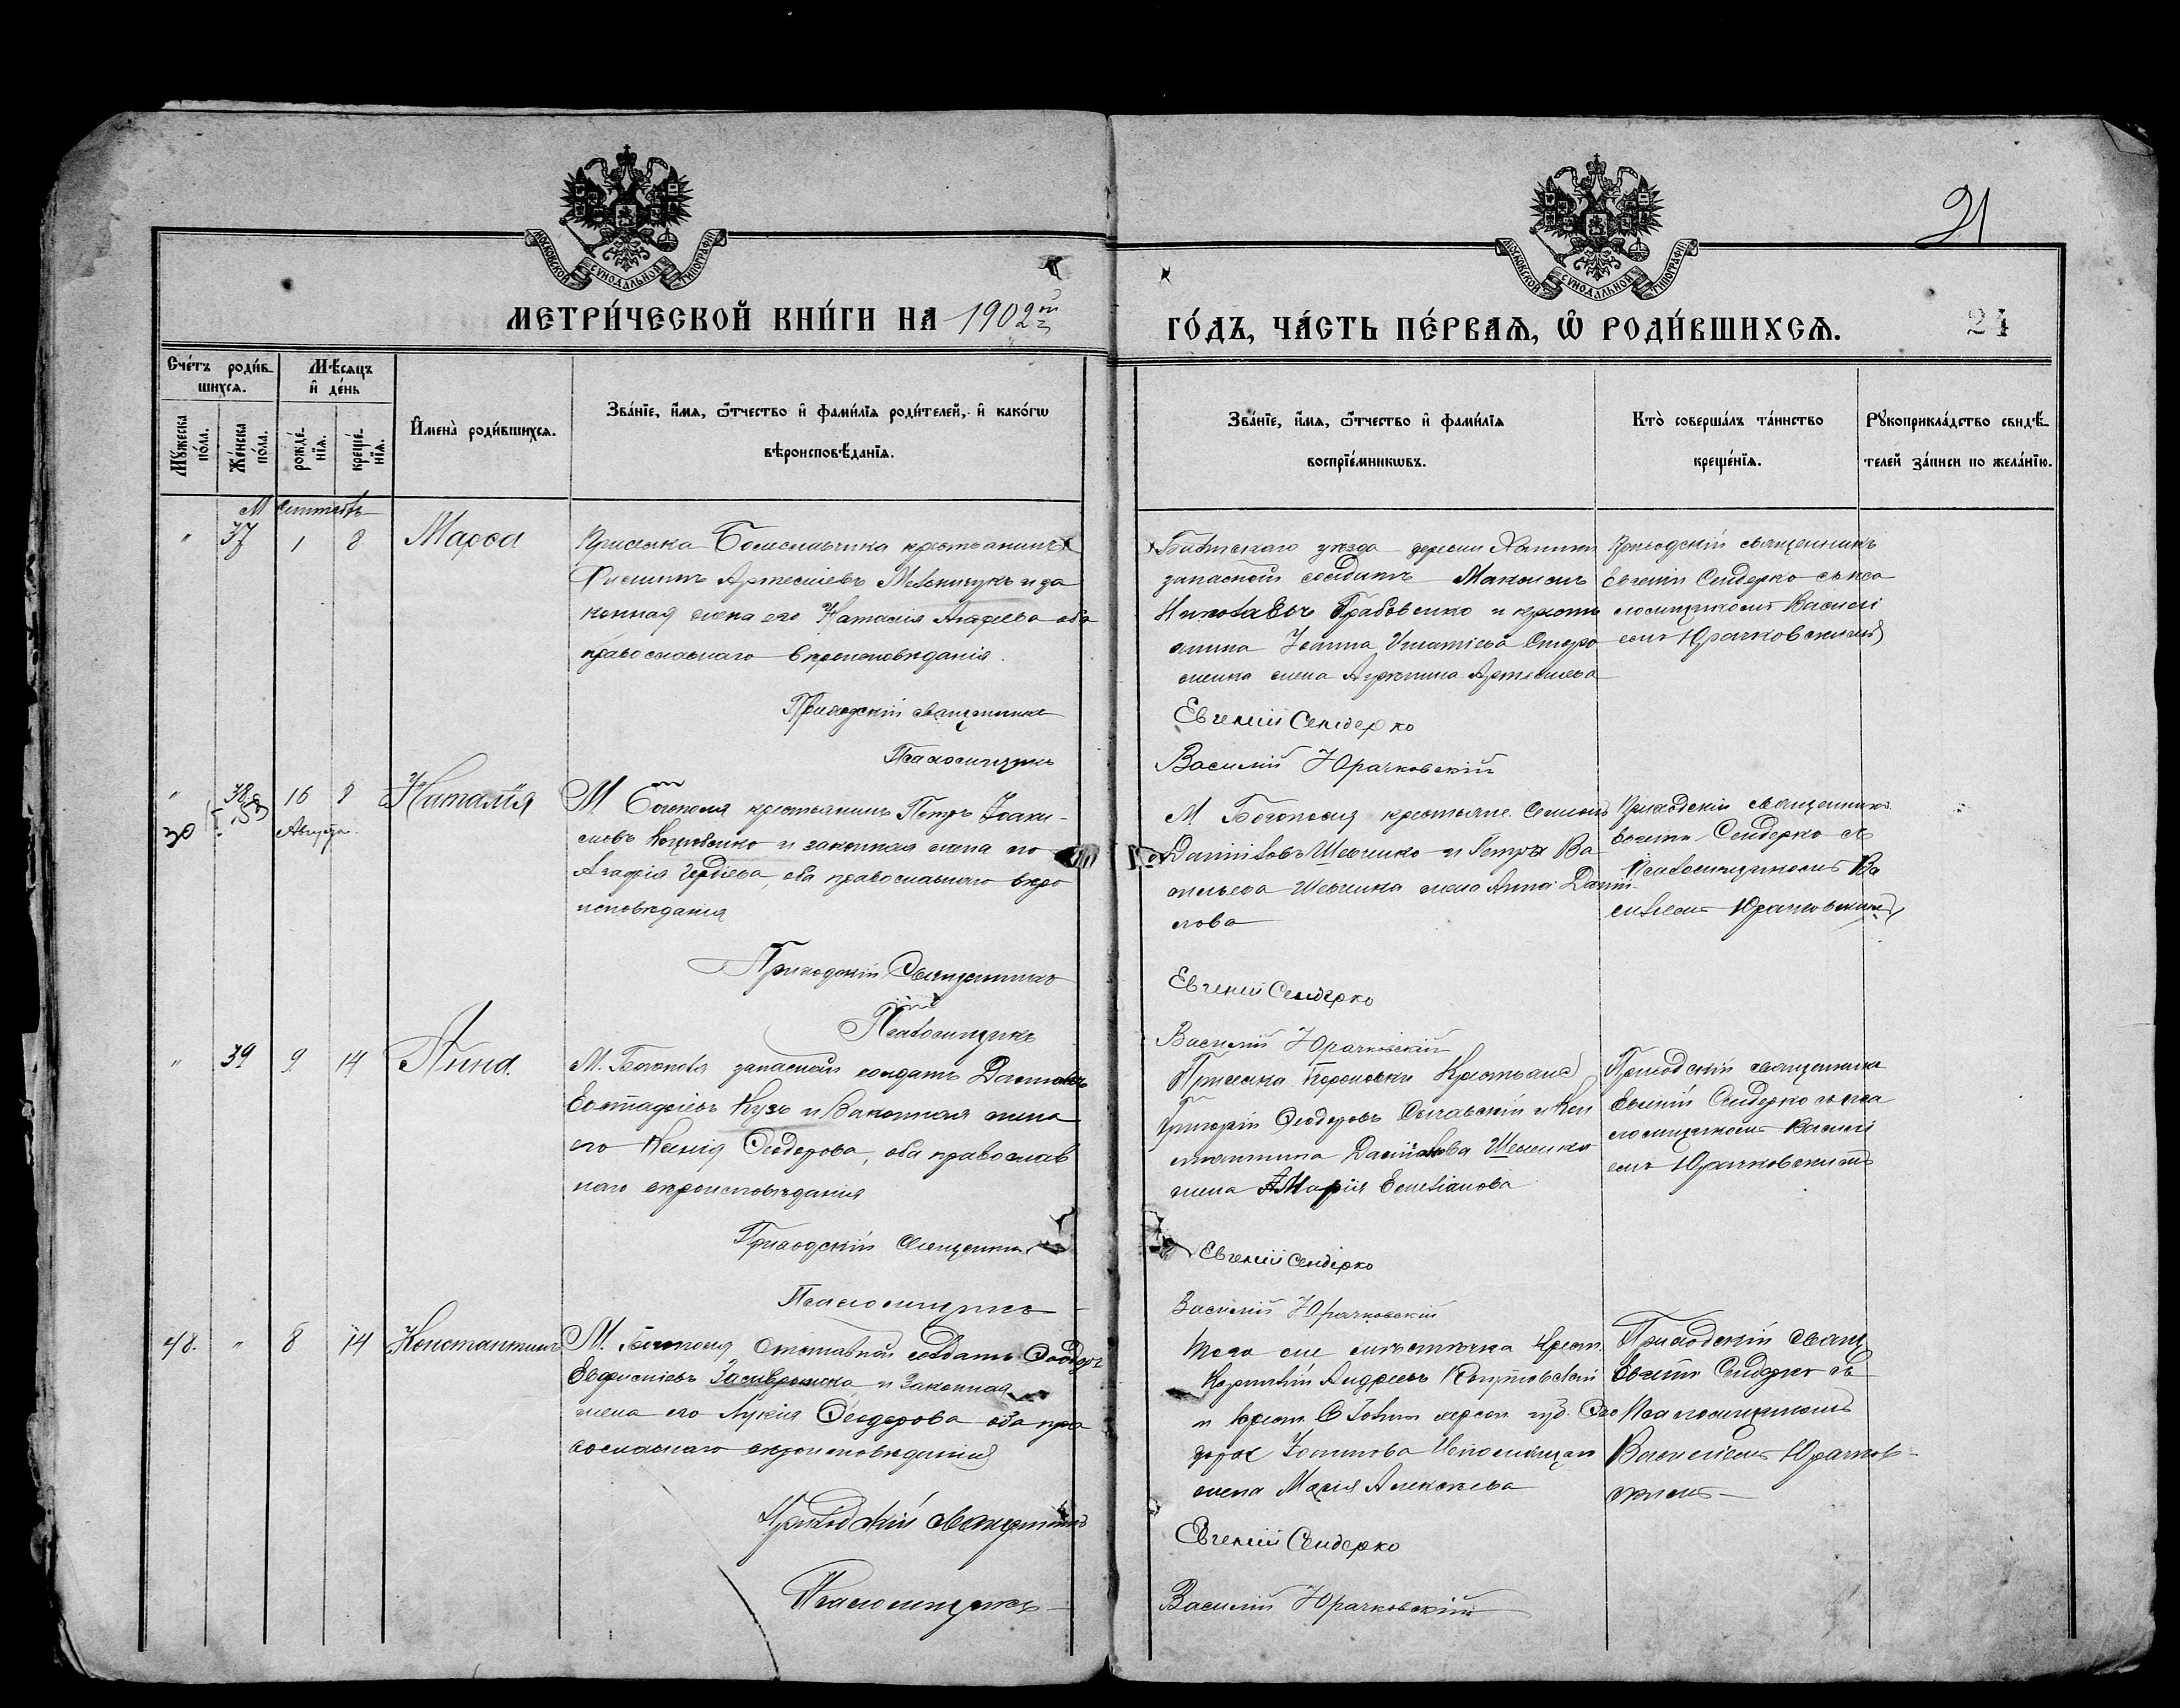 21
МОСКОВСКОЙ СУНОДАЛЬНОЙ ТИПОГРАФІИ
МОСКОВСКОЙ СУНОДАЛЬНОЙ ТИПОГРАФІИ
МЕТРИ́ЧЕСКОЙ КНИ́ГИ НА 1902 й
ГО́ДЪ, ЧА́СТЬ ПЕ́РВАѦ, Ѡ РОДИ́ВШИХСѦ.
24
Сче́тъ роди́в-
шихсѧ.
Мѣ́сѧцъ
и҆ де́нь
Мꙋ́жеска
по́ла.
Же́нска
по́ла.
рожде́-
нїѧ.
креще́-
нїѧ.
И҆мена̀ роди́вшихсѧ.
Зва́нїе, и҆́мѧ, ѻ҆́тчество и҆ фами́лїѧ роди́телей, и҆ како́гѡ
вѣроисповѣ́данїѧ.
Зва́нїе, и҆́мѧ, ѻ҆́тчество и҆ фами́лїѧ
воспрїе́мникѡвъ.
Кто̀ соверша́лъ та́инство
креще́нїѧ.
Рꙋкоприкла́дство свидѣ́-
телей за́писи по жела́нїю.
М Сентябрь
" 37 1 8 Марѳа
крестьянинъ
Артемиевъ Мельничукъ и за
конная жена его Наталія Агафіева оба
православнаго вѣроисповѣданія.
Приходскій священникъ
Псаломщикъ
уѣзда деревни
запасной солдатъ Максимъ
Николаевъ Грабовенко и крестья
нина Іоанна Игнатіева
жена Артемиева
Евгеній Сендерко
Василій Юрачковскій
Приходскій священникъ
Евгеній Сендерко съ пса
ломщикомъ Василі
емъ Юрачковскимъ
" 38 16 8 Наталія
30 Августа.
М. Богополя крестьянинъ Петръ Іоаки-
мовъ и законная жена его
Агафія оба православнаго вѣро
исповѣданія
Приходскій Священникъ
Псаломщикъ
М Богополя крестьяне Симеонъ
Даниловъ Шевченко и Петра Ва
сильева Шевченка жена Анна Дани-
лова
Евгеній Сендерко
Василій Юрачковскій
Приходскій священникъ
Евгеній Сендерко съ
Псаломщикомъ Ва
силіемъ Юрачковскимъ
" 39 9 14 Анна.
М. Богополя запасной солдатъ
Евстафіевъ Кузь и Законная жена
его Ксенія Ѳеодорова, оба православ
наго вѣроисповѣданія
Приходскій Священникъ
Псаломщикъ
Крестьяне
Григорій Ѳеодоровъ и Кон
стантина
жена Марія Емеліанова
Евгеній Сендерко
Василій Юрачковскій
Приходскій священникъ
Евгеній Сендерко съ пса
ломщикомъ Василі
емъ Юрачковскимъ
48. " 8 14 Константинъ
М. Богополя Отставной солдатъ Ѳеодоръ
Евфиміевъ и Законная
жена его Лукія Ѳеодорова оба пра
вославнаго вѣроисповѣданія
Приходскій священникъ
Псаломщикъ
того же мѣстечка крест.
Корнилій Андреевъ
и крест. губ. Ѳео
дора
жена Марія Алексѣева
Евгеній Сендерко
Василій Юрачковскій
Приходскій Свящ
Евгеній Сендерко съ
Псаломщикомъ
Василіемъ Юрачков-
скимъ